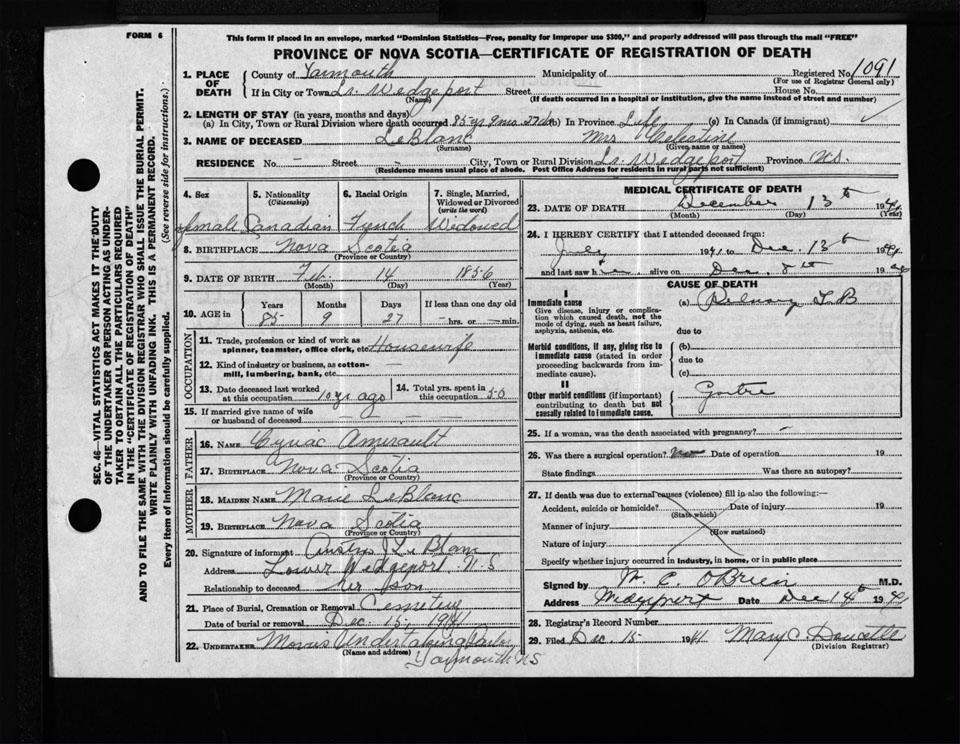 FORM 6
This form if placed in an envelope, marked "Dominion Statistics—Free, penalty for improper use $300," and properly addressed will pass through the mail "FREE"
PROVINCE OF NOVA SCOTIA—CERTIFICATE OF REGISTRATION OF DEATH
1. PLACE OF DEATH
County of Yarmouth Municipality of Registered No. 1091
(For use of Registrar General only)
If in City or Town Lr. Wedgeport Street House No.
(Name) (If death occurred in a hospital or institution, give the name instead of street and number)
2. LENGTH OF STAY (in years, months and days)
(a) In City, Town or Rural Division where death occurred 85 yr 9 mo. 27 da (b) In Province Life (c) In Canada (if immigrant)
3. NAME OF DECEASED LeBlanc Mrs Celestine
(Surname) (Given name or names)
RESIDENCE No. – Street – City, Town or Rural Division Lr. Wedgeport Province N.S.
(Residence means usual place of abode. Post Office Address for residents in rural parts not sufficient)
4. Sex 5. Nationality (Citizenship) 6. Racial Origin 7. Single, Married, Widowed or Divorced (write the word)
female Canadian French Widowed
8. BIRTHPLACE Nova Scotia
(Province or Country)
9. DATE OF BIRTH Feb. 14 1856
(Month) (Day) (Year)
10. AGE in Years Months Days If less than one day old
85 9 27 – hrs. or – min.
OCCUPATION
11. Trade, profession or kind of work as spinner, teamster, office clerk, etc. Housewife
12. Kind of industry or business, as cotton-mill, lumbering, bank, etc. –
13. Date deceased last worked at this occupation 10 yr ago
14. Total yrs. spent in this occupation 50
15. If married give name of wife or husband of deceased –
FATHER
16. NAME Cyriac Amirault
17. BIRTHPLACE Nova Scotia
(Province or Country)
MOTHER
18. MAIDEN NAME Marie LeBlanc
19. BIRTHPLACE Nova Scotia
(Province or Country)
20. Signature of informant Austin J LeBlanc
Address Lower Wedgeport N.S
Relationship to deceased her son
21. Place of Burial, Cremation or Removal Cemetery
Date of burial or removal Dec. 15, 1941
22. UNDERTAKER Undertaking Parlor
(Name and address) Yarmouth NS
MEDICAL CERTIFICATE OF DEATH
23. DATE OF DEATH December 13th 1941
(Month) (Day) (Year)
24. I HEREBY CERTIFY that I attended deceased from:
July 1941 to Dec. 13th 1941
and last saw her alive on Dec. 8th 1941
CAUSE OF DEATH
I
Immediate cause (a) Pulmonary T B
Give disease, injury or complication which caused death, not the mode of dying, such as heart failure, asphyxia, asthenia, etc.
due to
Morbid conditions, if any, giving rise to immediate cause (stated in order proceeding backwards from immediate cause).
(b)
due to
(c)
II
Other morbid conditions (if important) contributing to death but not causally related to immediate cause.
Goitre
25. If a woman, was the death associated with pregnancy? –
26. Was there a surgical operation? no Date of operation 19
State findings Was there an autopsy?
27. If death was due to external causes (violence) fill in also the following:—
Accident, suicide or homicide? Date of injury 19
(State which)
Manner of injury
(How sustained)
Nature of injury
Specify whether injury occurred in industry, in home, or in public place
Signed by W. C. O'Brien M.D.
Address Wedgeport Date Dec 14th 1941
28. Registrar's Record Number
29. Filed Dec 15 1941 Mary C. Doucette
(Division Registrar)
SEC. 46—VITAL STATISTICS ACT MAKES IT THE DUTY
OF THE UNDERTAKER OR PERSON ACTING AS UNDER-
TAKER TO OBTAIN ALL THE PARTICULARS REQUIRED
IN THE "CERTIFICATE OF REGISTRATION OF DEATH"
AND TO FILE THE SAME WITH THE DIVISION REGISTRAR WHO SHALL ISSUE THE BURIAL PERMIT.
WRITE PLAINLY WITH UNFADING INK. THIS IS A PERMANENT RECORD.
Every item of information should be carefully supplied. (See reverse side for instructions.)